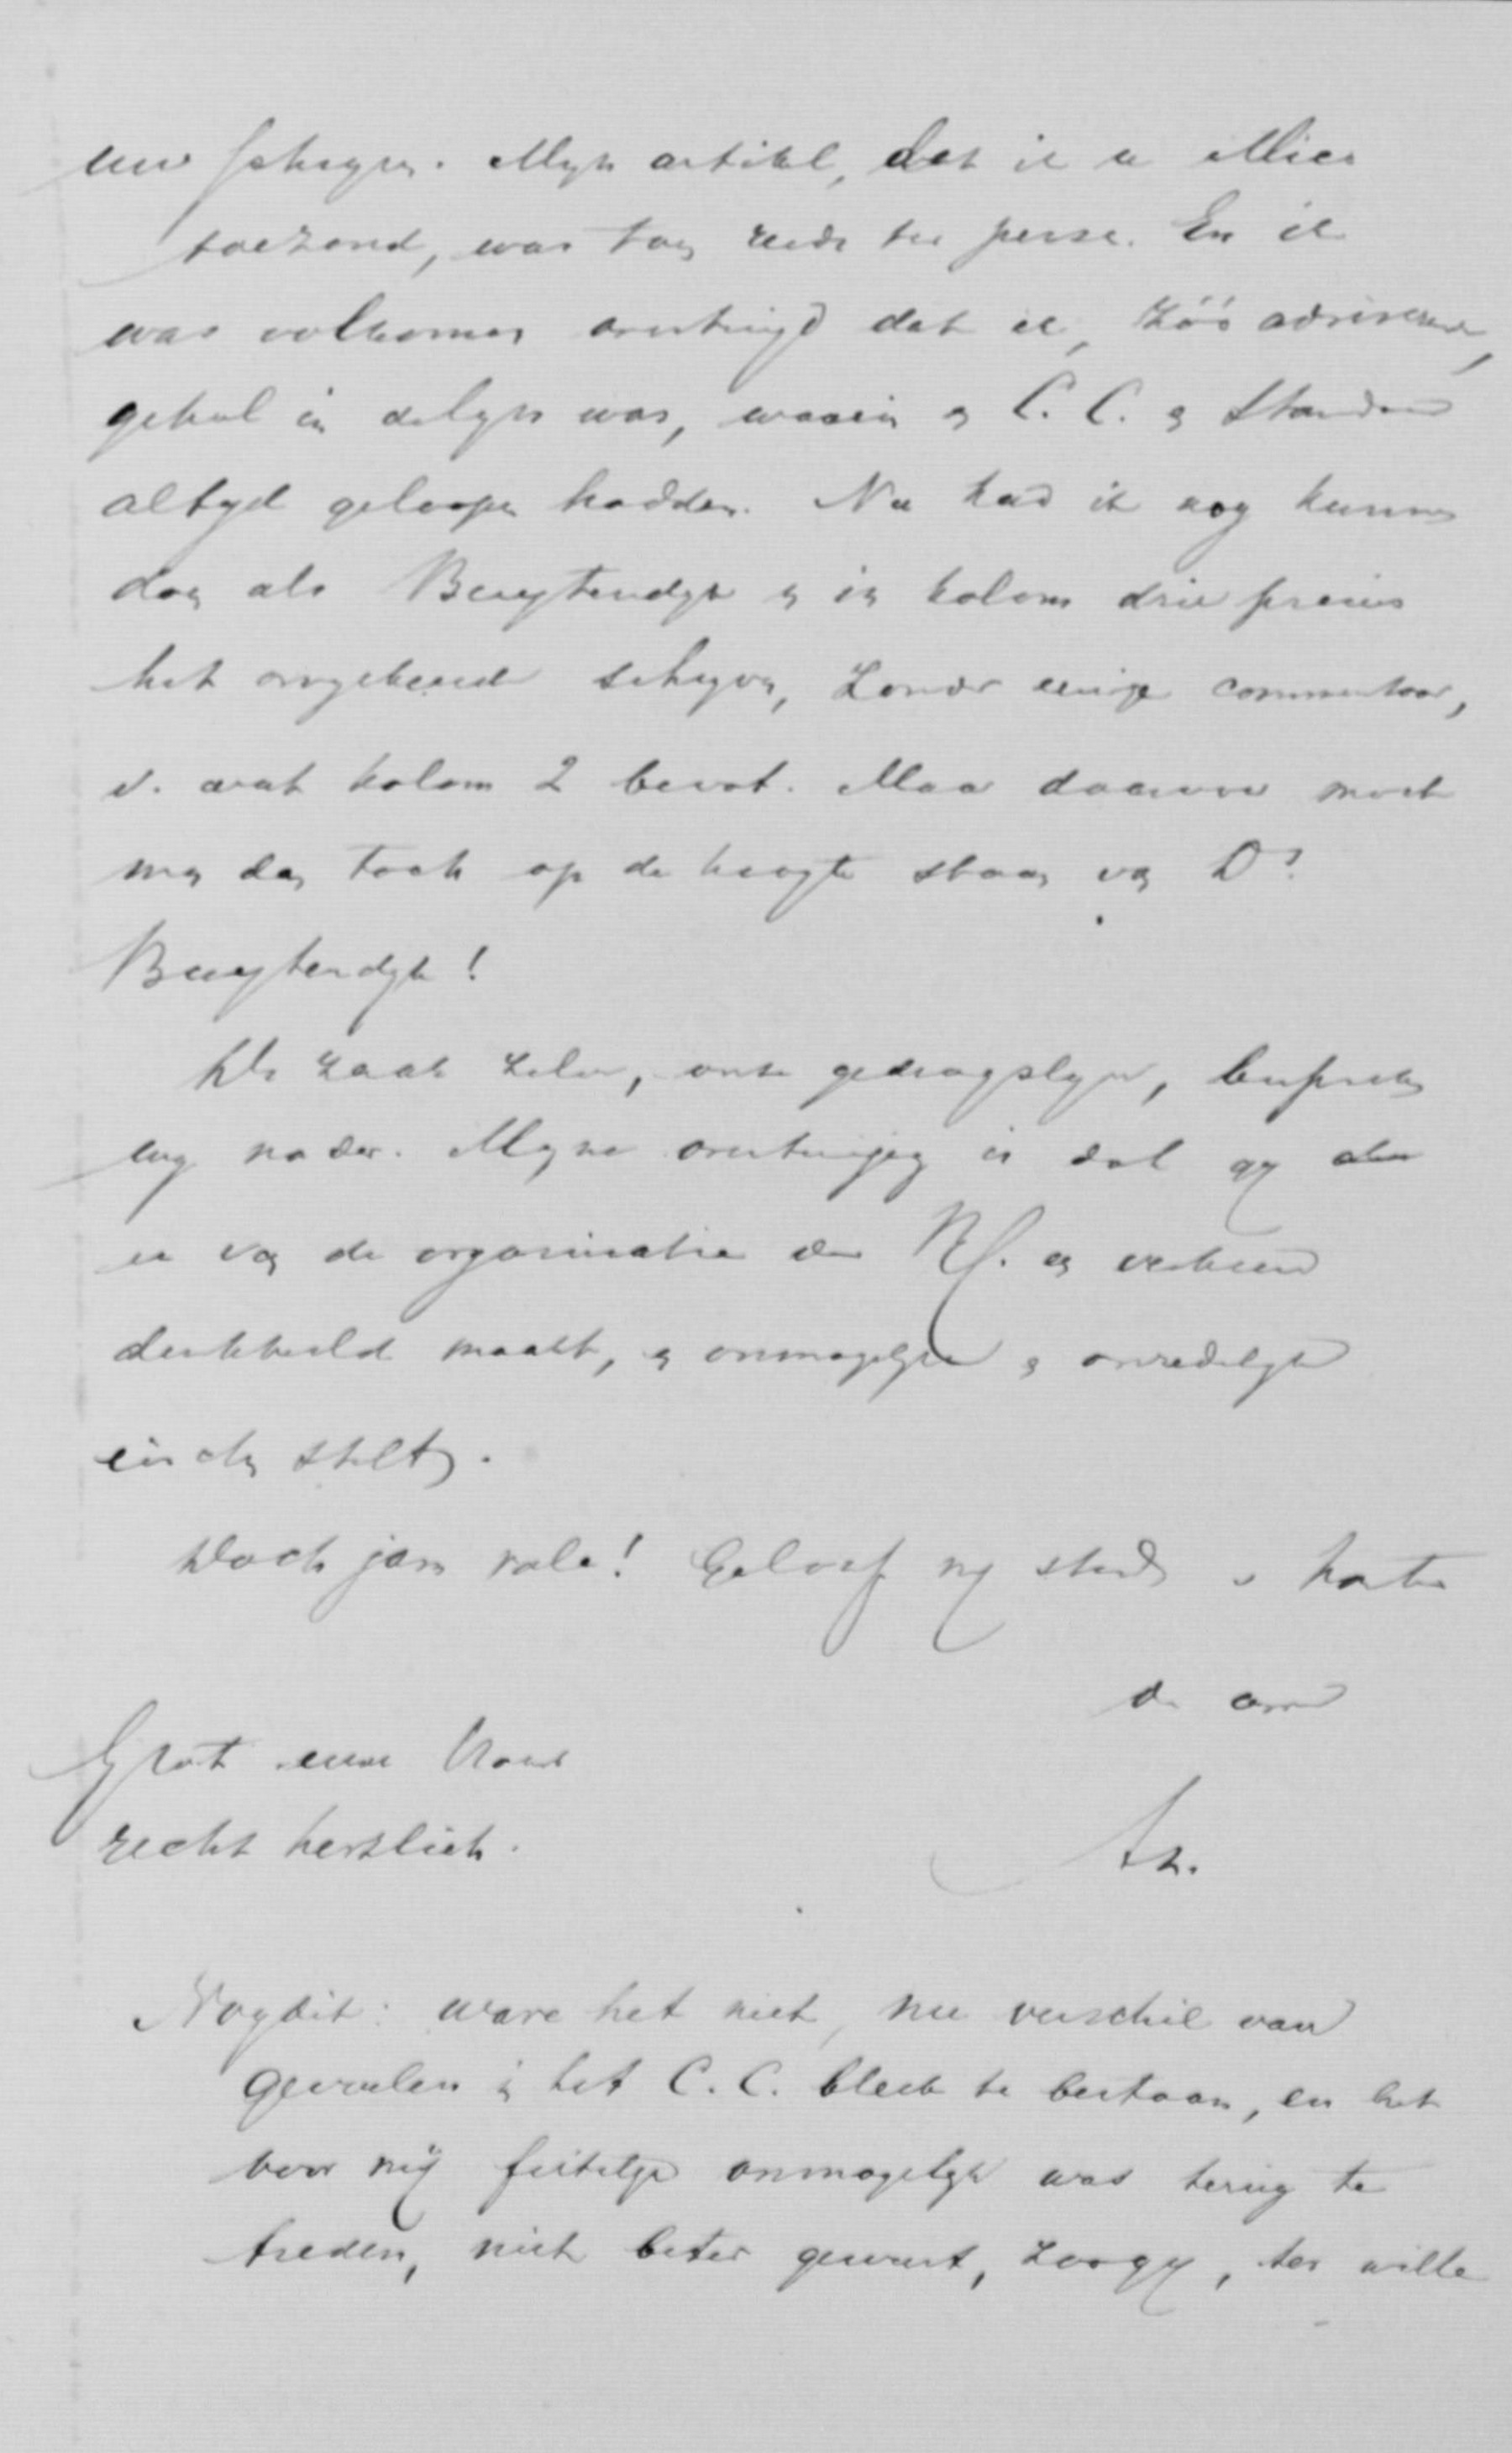 uw schryven. Myn artikel, dat ik u
toezond, was toen reeds ter perse. En ik
was volkomen overtuigd dat ik, zóó adviseerende,
geheel in de lyn was, waarin en C. C. en Standaard
altyd geloopen hadden. Nu had ik nog kunnen
doen als Buytendyk en in kolom drie precies
het omgekeerde schryven, zonder eenige commentaar,
v. wat kolom 2 bevat. Maar daarvoor moet
men dan toch op de hoogte staan van Ds
Buytendyk!
De zaak zelve, onze gedragslyn, bespreken
wy nader. Myne overtuiging is dat gy
u van de organisatie der een verkeerd
denkbeeld maakt, en onmogelyke en onredelyke
eischen stelt.
Doch jam vale! Geloof my steeds v harte
de uwe
Groet uwe Vrouw
recht hertelick.
Nog dit: ware het niet, nu verschil van
gevoelen in het C. C. bleek te bestaan, en het
voor mij feitelyk onmogelyk was terug te
treden, niet beter geweest, zoo gy, ter wille